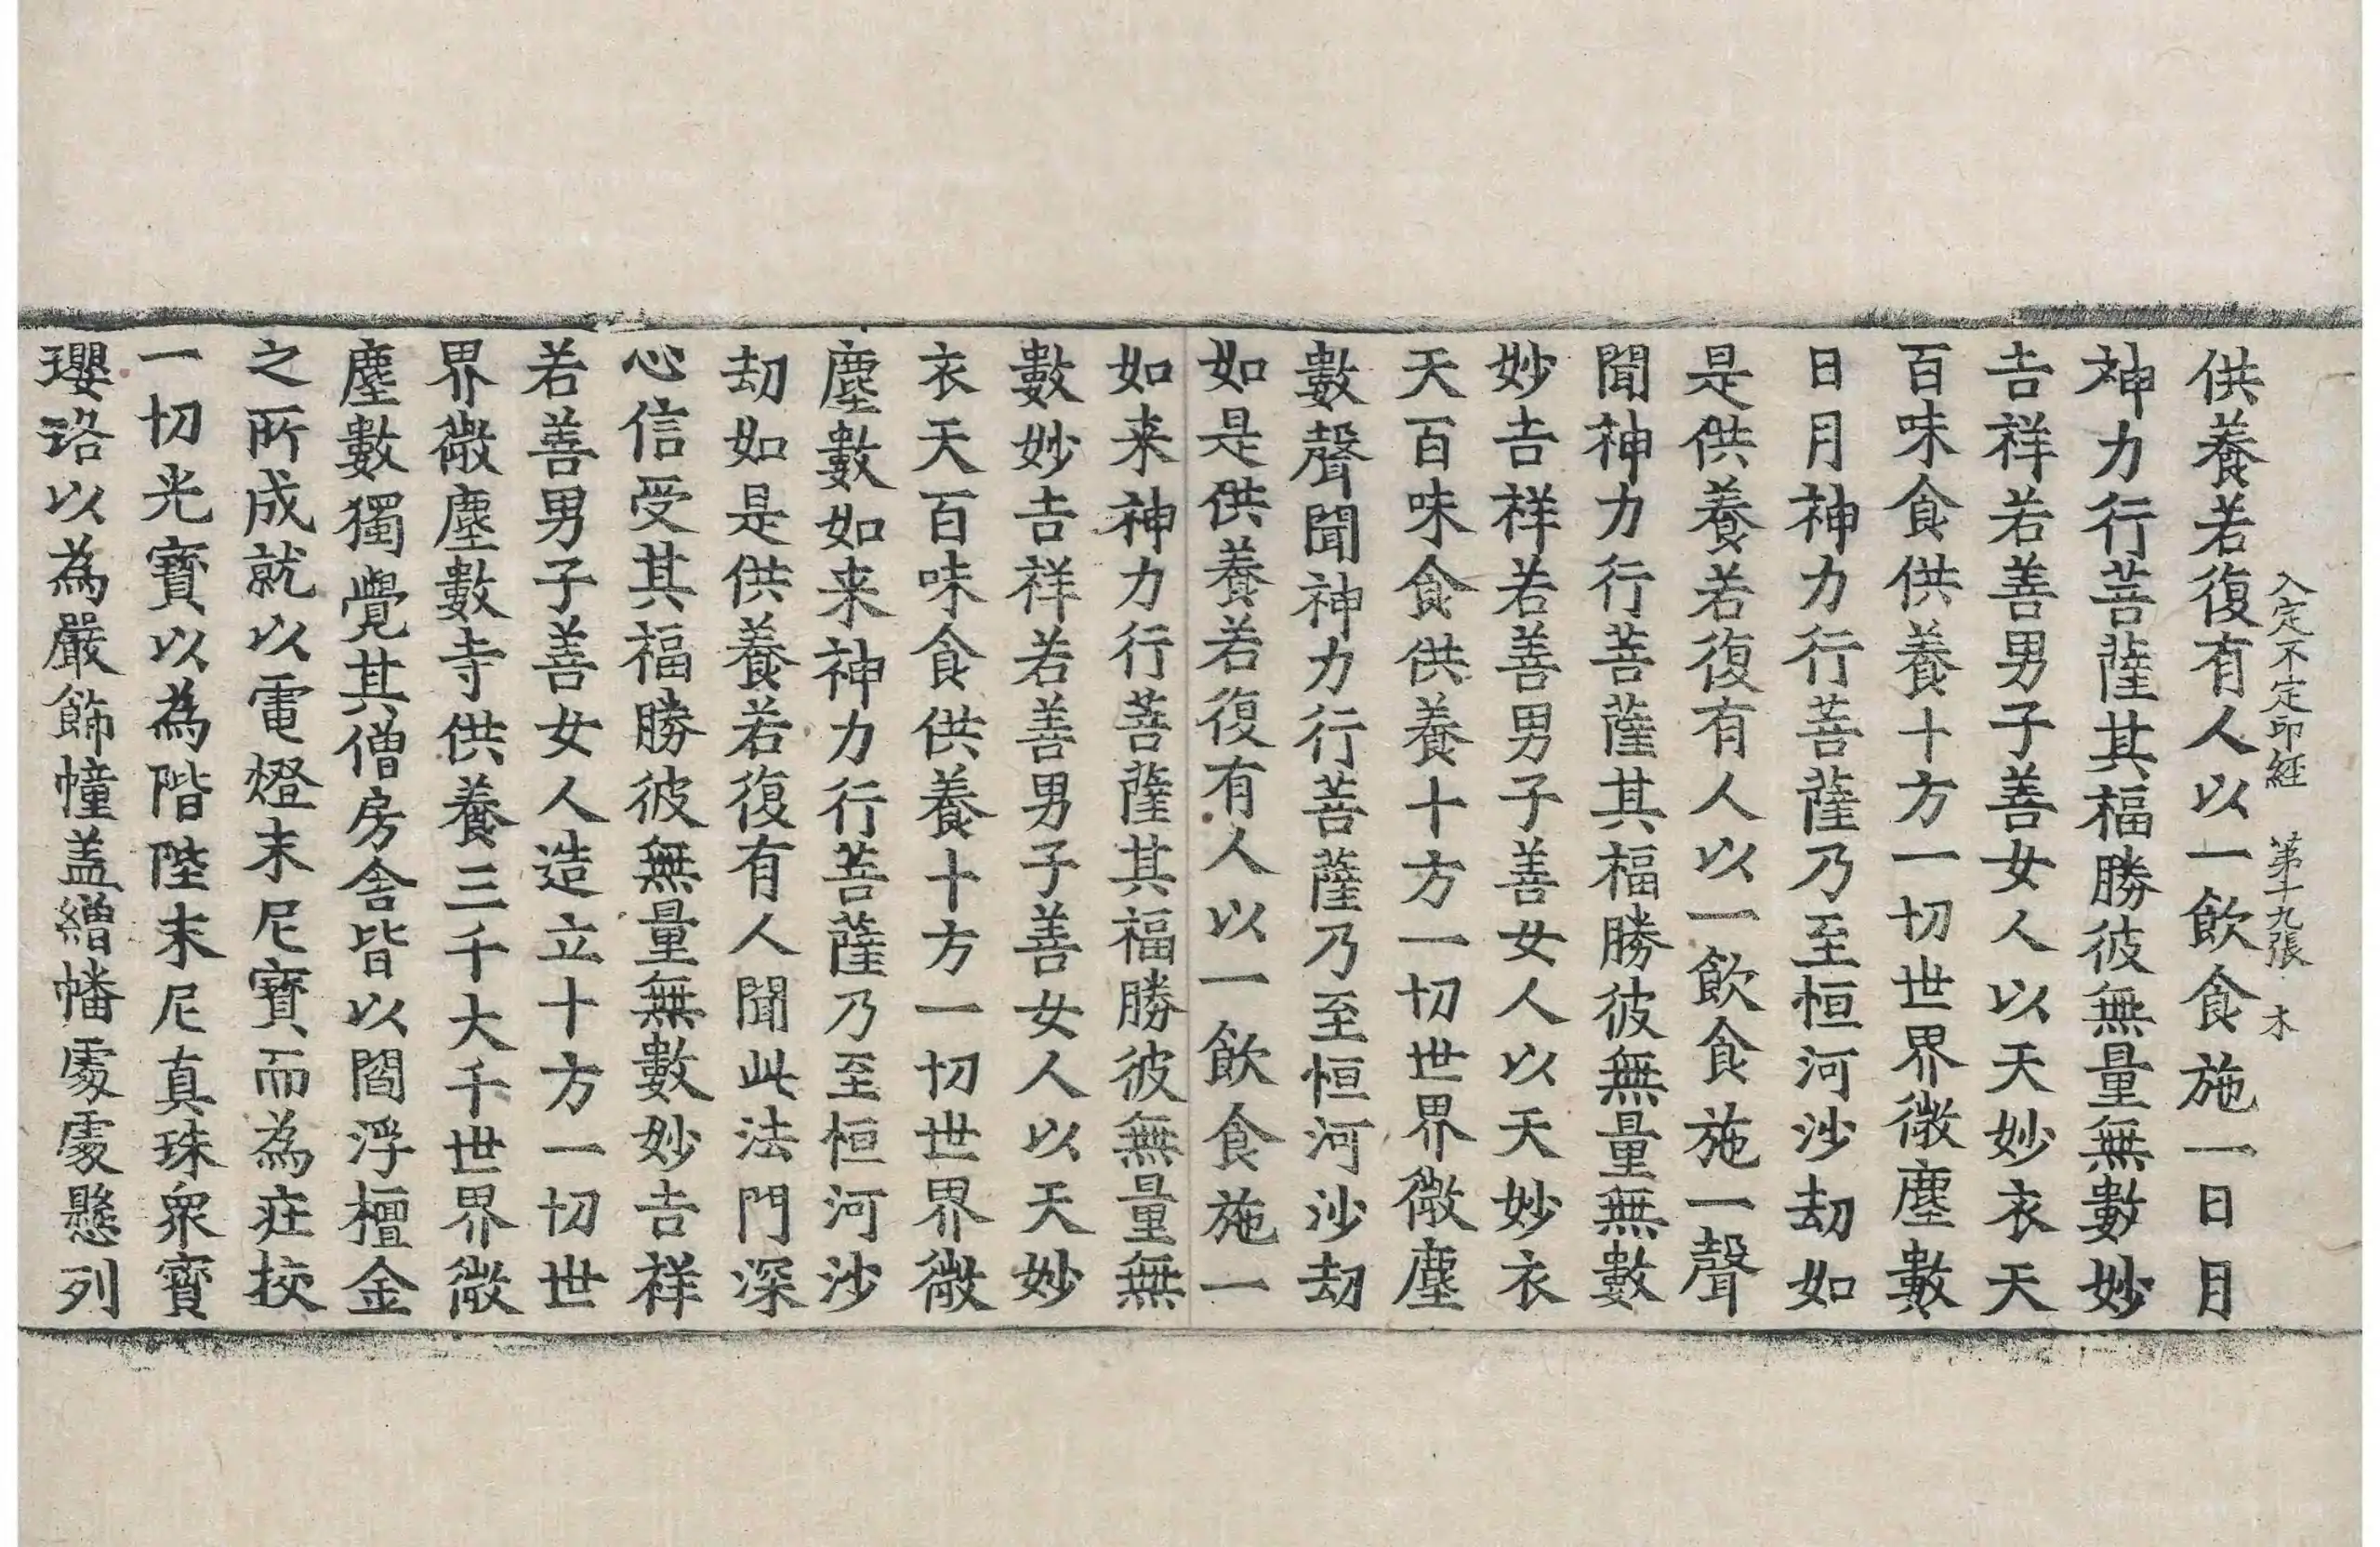 入定不定印經　第十九張　木
供養若復有人以一飲食施一日月
神力行菩薩其福勝彼無量無數妙
吉祥若善男子善女人以天妙衣天
百味食供養十方一切世界微塵數
日月神力行菩薩乃至恒河沙劫如
是供養若復有人以一飲食施一聲
聞神力行菩薩其福勝彼無量無數
妙吉祥若善男子善女人以天妙衣
天百味食供養十方一切世界微塵
數聲聞神力行菩薩乃至恒河沙劫
如是供養若復有人以一飲食施一
如来神力行菩薩其福勝彼無量無
數妙吉祥若善男子善女人以天妙
衣天百味食供養十方一切世界微
塵數如来神力行菩薩乃至恒河沙
劫如是供養若復有人聞此法門深
心信受其福勝彼無量無數妙吉祥
若善男子善女人造立十方一切世
界微塵數寺供養三千大千世界微
塵數獨覺其僧房舍皆以閻浮檀金
之所成就以電燈末尼寶而為疰挍
一切光寶以為階陛末尼真珠衆寶
瓔珞以為嚴飾幢盖繒幡處處懸列